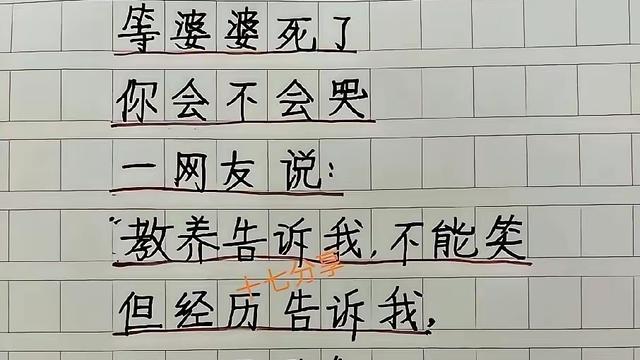 等婆婆死了
你会不会哭
一网友说:
"教养告诉我,不能笑
十七分享
但经历告诉我,